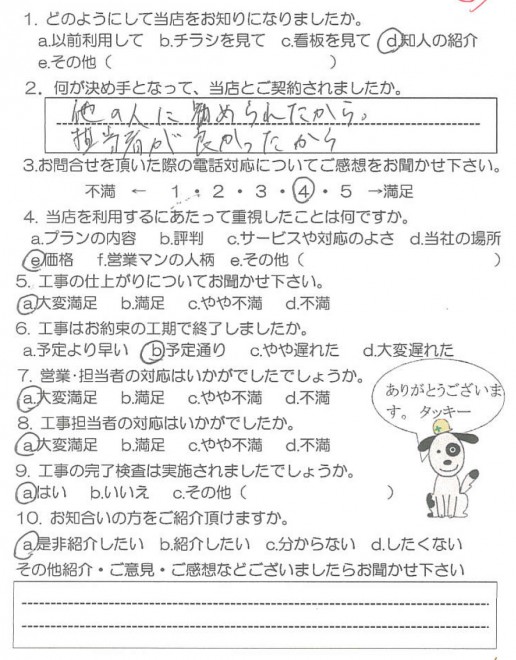 1. どのようにして当店をお知りになりましたか。
a.以前利用して b.チラシを見て c.看板を見て d.知人の紹介
e.その他（　　　　　　　　　　）
2. 何が決め手となって、当店とご契約されましたか。
他の人に勧められたから。
担当者が良かったから
3.お問合せを頂いた際の電話対応についてご感想をお聞かせ下さい。
不満 ← 1・2・3・4・5 →満足
4. 当店を利用するにあたって重視したことは何ですか。
a.プランの内容 b.評判 c.サービスや対応のよさ d.当社の場所
e.価格 f.営業マンの人柄 e.その他（　　　　　　　　　　）
5. 工事の仕上がりについてお聞かせ下さい。
a.大変満足 b.満足 c.やや不満 d.不満
6. 工事はお約束の工期で終了しましたか。
a.予定より早い b.予定通り c.やや遅れた d.大変遅れた
7. 営業・担当者の対応はいかがでしたでしょうか。
a.大変満足 b.満足 c.やや不満 d.不満
8. 工事担当者の対応はいかがでしたか。
a.大変満足 b.満足 c.やや不満 d.不満
ありがとうございま
す。 タッキー
9. 工事の完了検査は実施されましたでしょうか。
a.はい b.いいえ c.その他（　　　　　　　）
10. お知合いの方をご紹介頂けますか。
a.是非紹介したい b.紹介したい c.分からない d.したくない
その他紹介・ご意見・ご感想などございましたらお聞かせ下さい